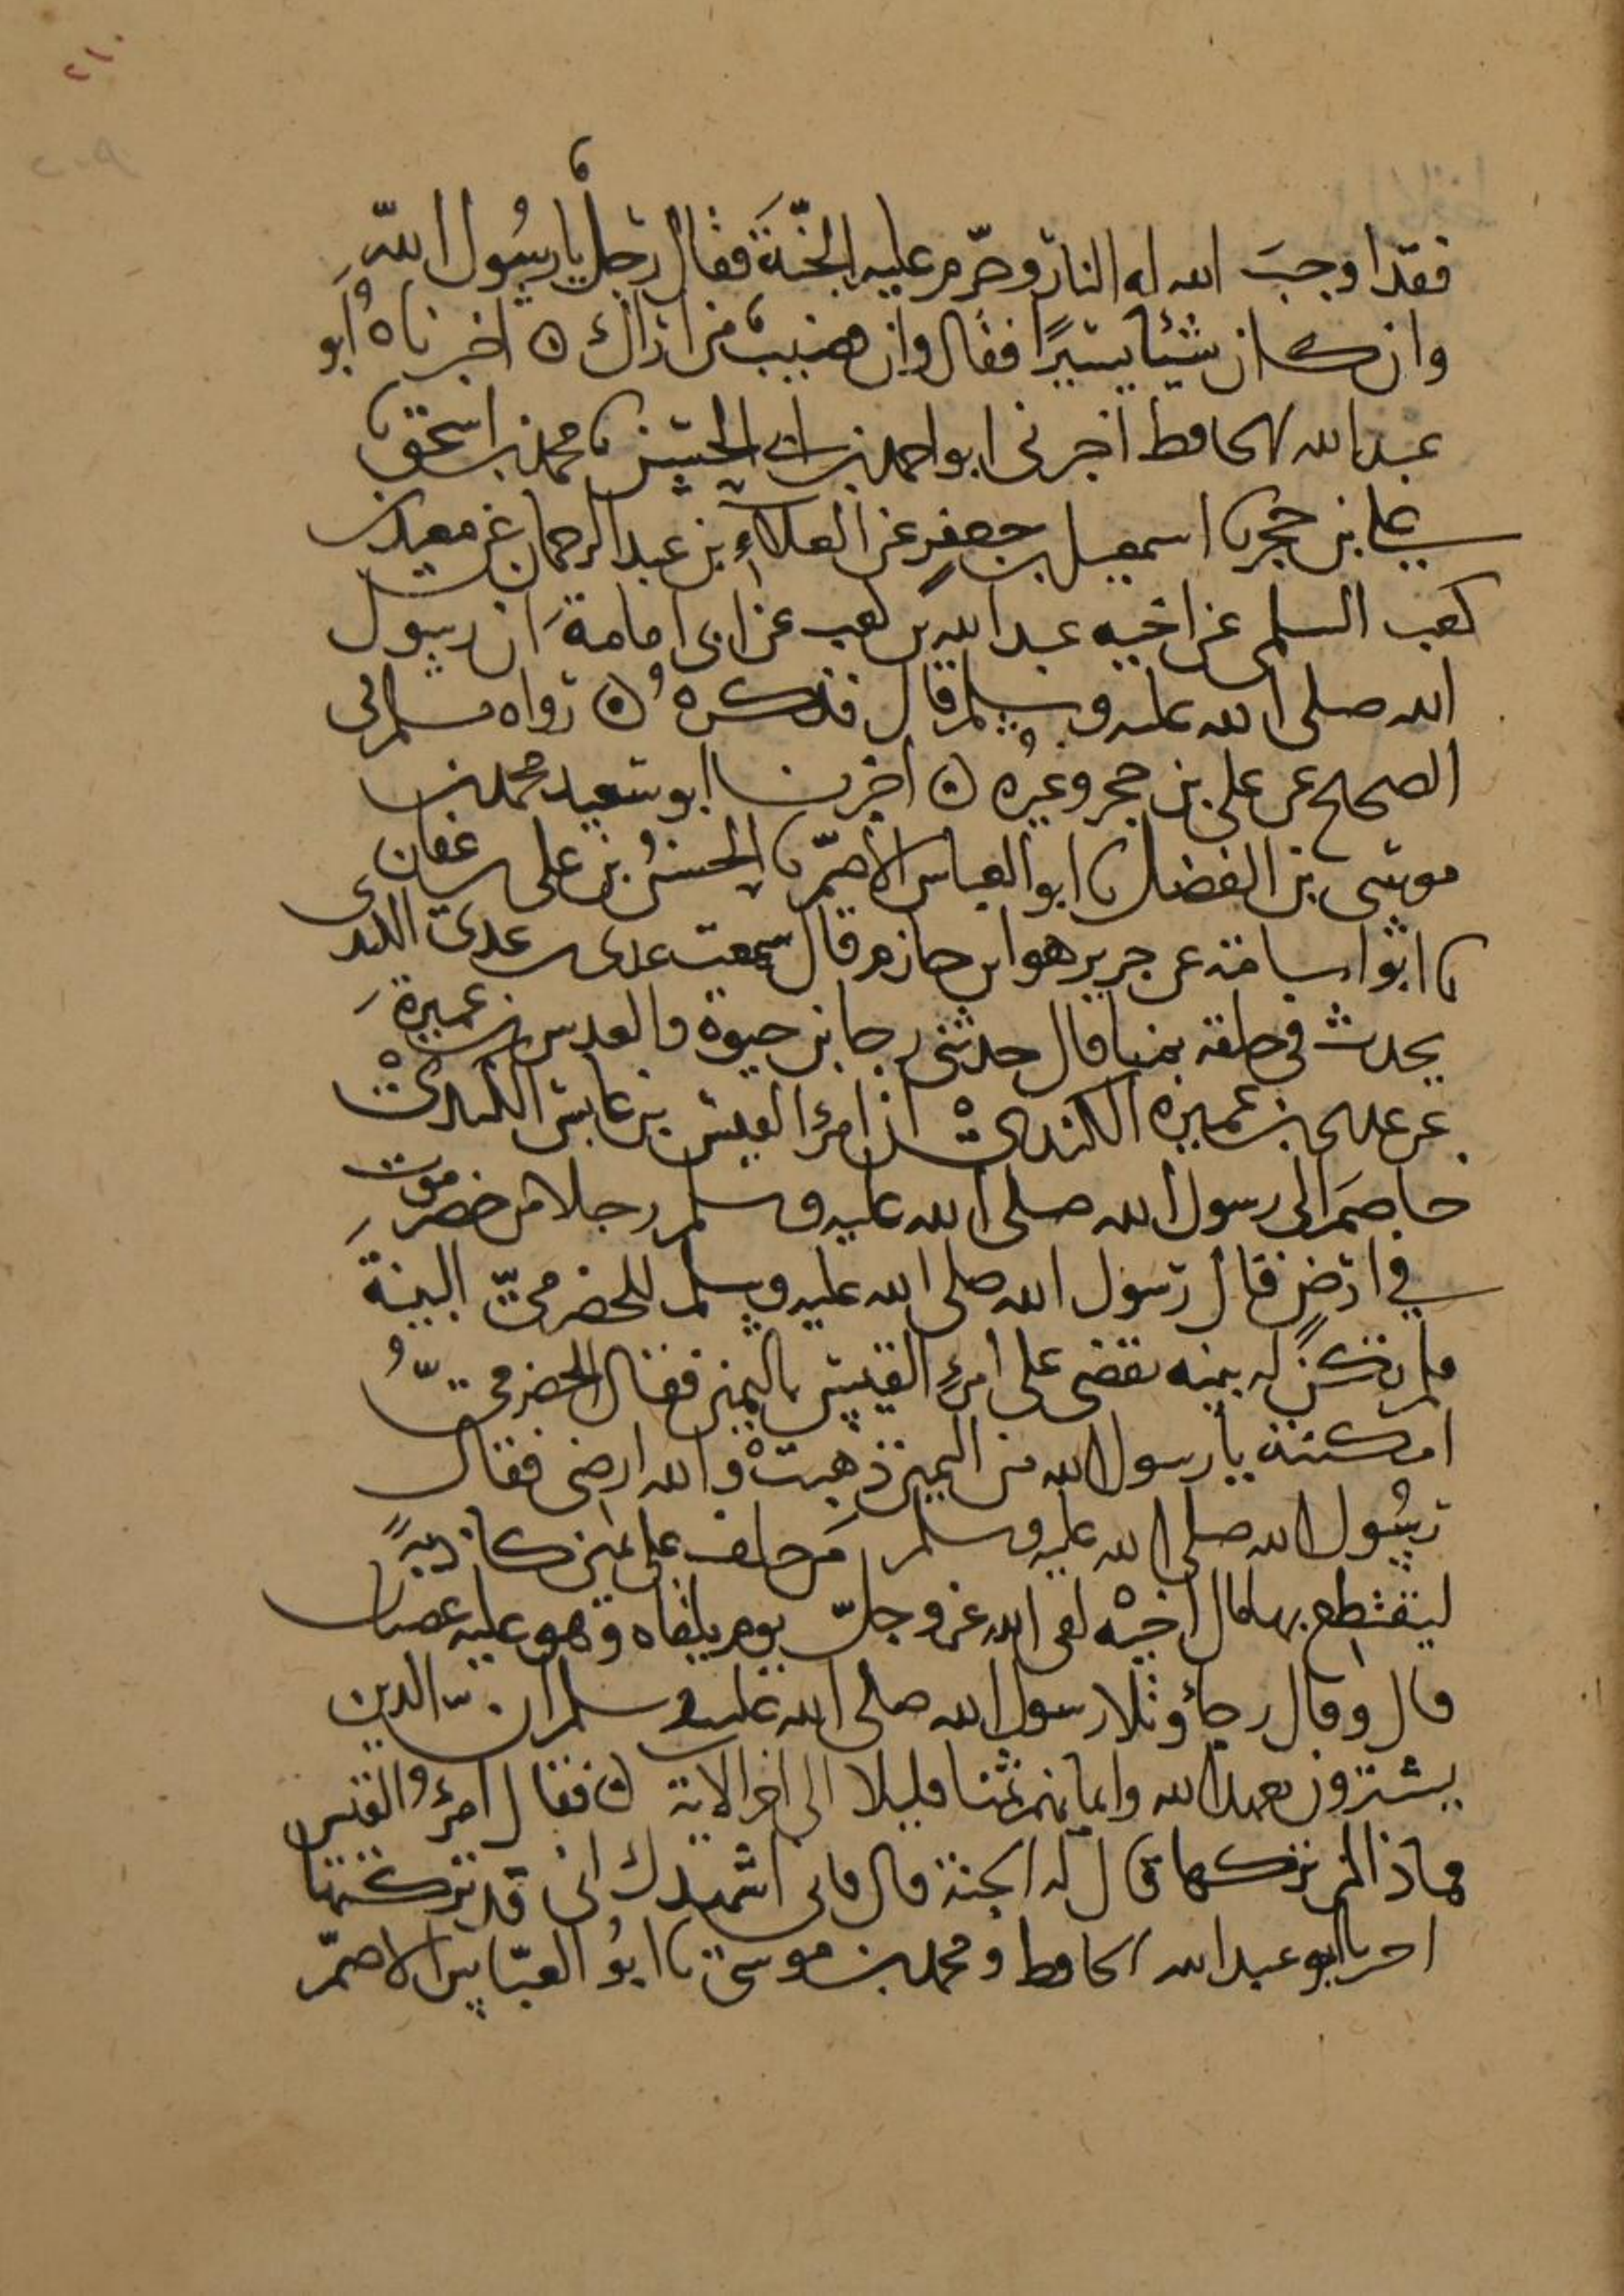 ٢١٠
فقد اوجب الله له النار وحرّم عليه الجنّة فقال رجل يا رسُول الله
وان كان شيئا يسيرًا فقال وان قضيب من اراك ه اخبرناهُ ابو
عبد الله الحافظ اخبرني ابو احمد بن ابي الحسين نا محمد بن اسحق نا
علي بن حجر نا اسمعيل بن جعفر عن العلاء بن عبد الرحمان عن معبد بن
كعب السلمي عن اخيه عبد الله بن كعب عن ابي امامة ان رسول
الله صلى الله عليه وسلم قال فذكره ه رواه مسلم في
الصحيح عن علي بن حجر وغيره ه اخبرنا ابو سعيد محمد بن
موسى بن الفضل نا ابو العباس الاصمّ نا الحسنُ بن علي بن عفان
نا ابو اسامة عن جرير هو ابن حازم قال سمعت عدي بن عدي الكندي
يحدث في حلقة بمنا قال حدثني رجا بن حيوة والعرس بن عميرة
عن عدي بن عميرة الكندي ان امرؤ القيس بن عابس الكندي
خاصم الى رسول الله صلى الله عليه وسلم رجلا من حضرموت
في ارض قال رسول الله صلى الله عليه وسلم للحضرمي البينة
فلم تكن له بينه فقضى على امرئ القيس باليمين فقال الحضرميّ
امكنته يا رسول الله من اليمين ذهبت والله ارضي فقال
رسُول الله صلى الله عليه وسلم من حلف على يمين كاذبةً
ليقتطع بها مال اخيه لقي الله عز وجلّ يوم يلقاه وهو عليه غضبان
قال وقال رجاؤ وتلا رسول الله صلى الله عليه وسلم ان الذين
يشترون بعهد الله وايمانهم ثمنا قليلا الى اخر الاية ه فقال امرؤ القيس
فماذا لمن تركها قال له الجنة قال فاني اشهدك اني قد تركتها
اخبرنا ابو عبد الله الحافظ ومحمد بن موسى نا ابوُ العبّاس الاصمّ